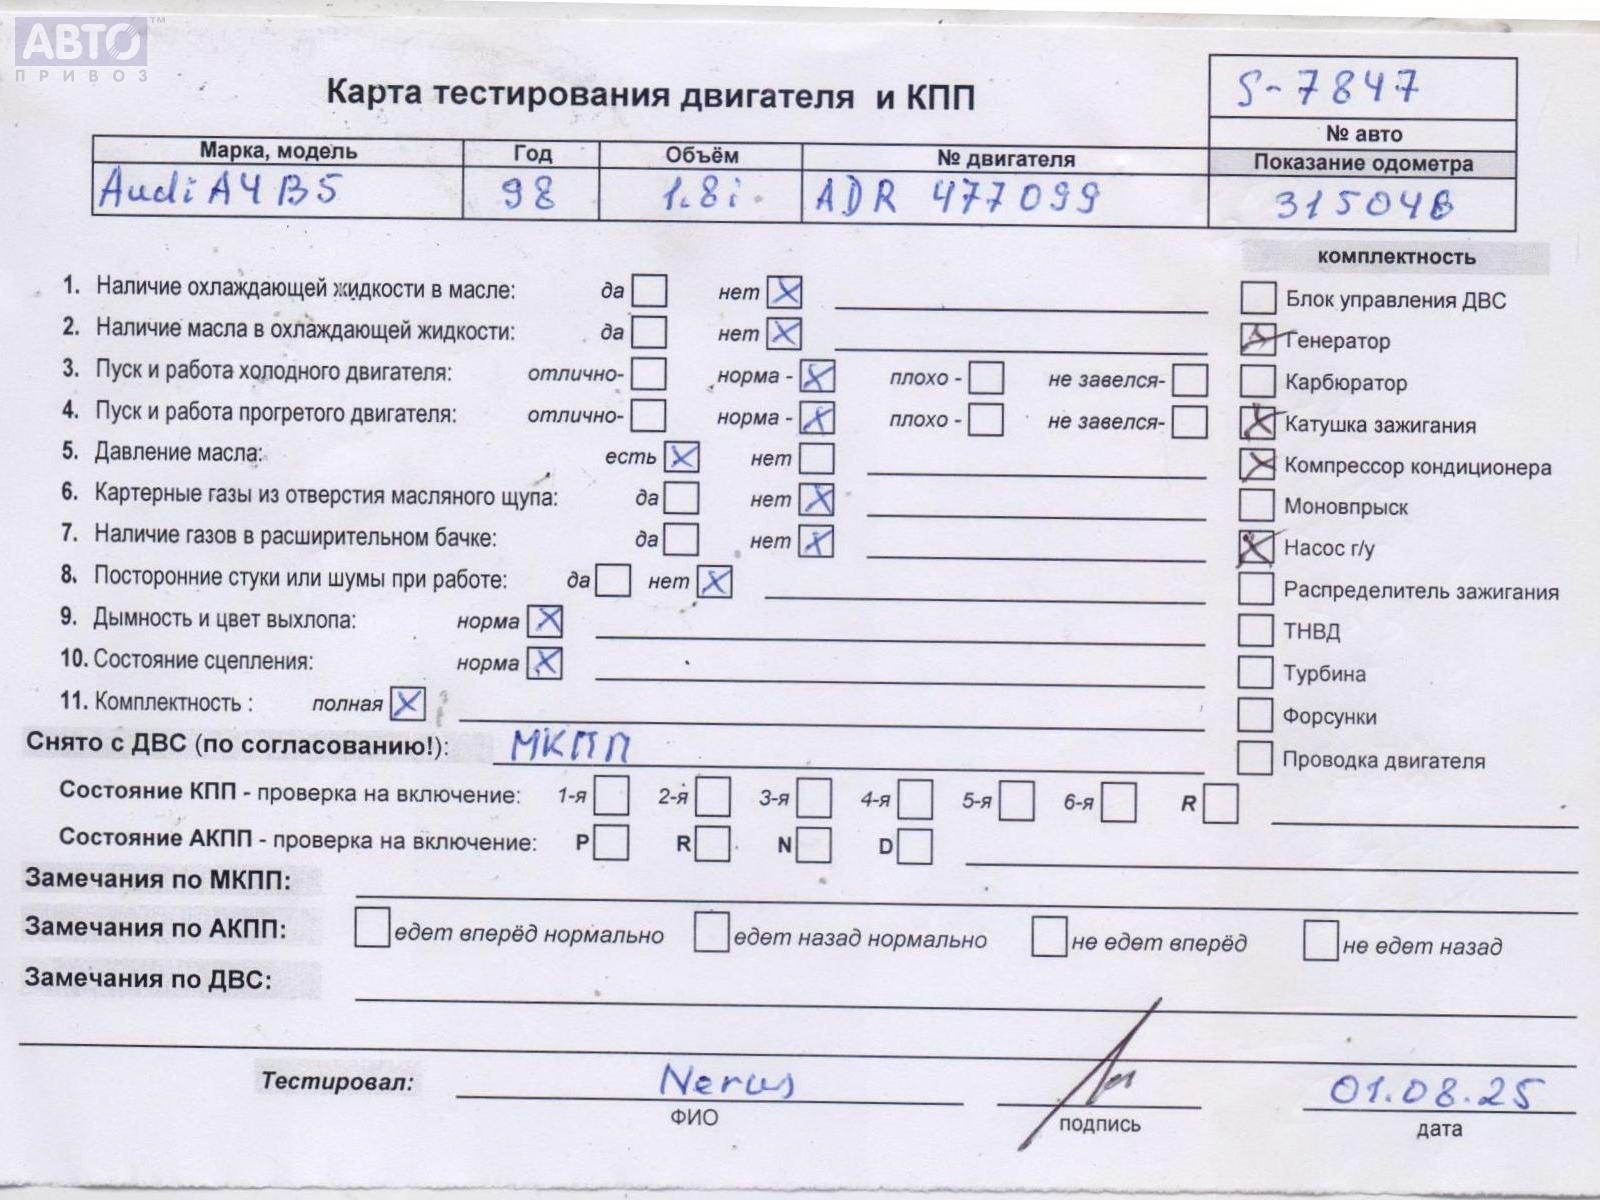 АВТО™
ПРИВОЗ
Карта тестирования двигателя и КПП
S-7847
№ авто
Марка, модель Год Объём № двигателя Показание одометра
Audi A4 B5 98 1.8i ADR 477099
комплектность
1. Наличие охлаждающей жидкости в масле: да нет
Блок управления ДВС
2. Наличие масла в охлаждающей жидкости: да нет
Генератор
3. Пуск и работа холодного двигателя: отлично- норма - плохо - не завелся-
Карбюратор
4. Пуск и работа прогретого двигателя: отлично- норма - плохо - не завелся-
Катушка зажигания
5. Давление масла: есть нет
Компрессор кондиционера
6. Картерные газы из отверстия масляного щупа: да нет
Моновпрыск
7. Наличие газов в расширительном бачке: да нет
Насос г/у
8. Посторонние стуки или шумы при работе: да нет
Распределитель зажигания
9. Дымность и цвет выхлопа: норма
ТНВД
10. Состояние сцепления: норма
Турбина
11. Комплектность : полная
Форсунки
Снято с ДВС (по согласованию!): МКПП
Проводка двигателя
Состояние КПП - проверка на включение: 1-я 2-я 3-я 4-я 5-я 6-я R
Состояние АКПП - проверка на включение: P R N D
Замечания по МКПП:
Замечания по АКПП: едет вперёд нормально едет назад нормально не едет вперёд не едет назад
Замечания по ДВС:
Тестировал: Nerus 01.08.25
ФИО подпись дата